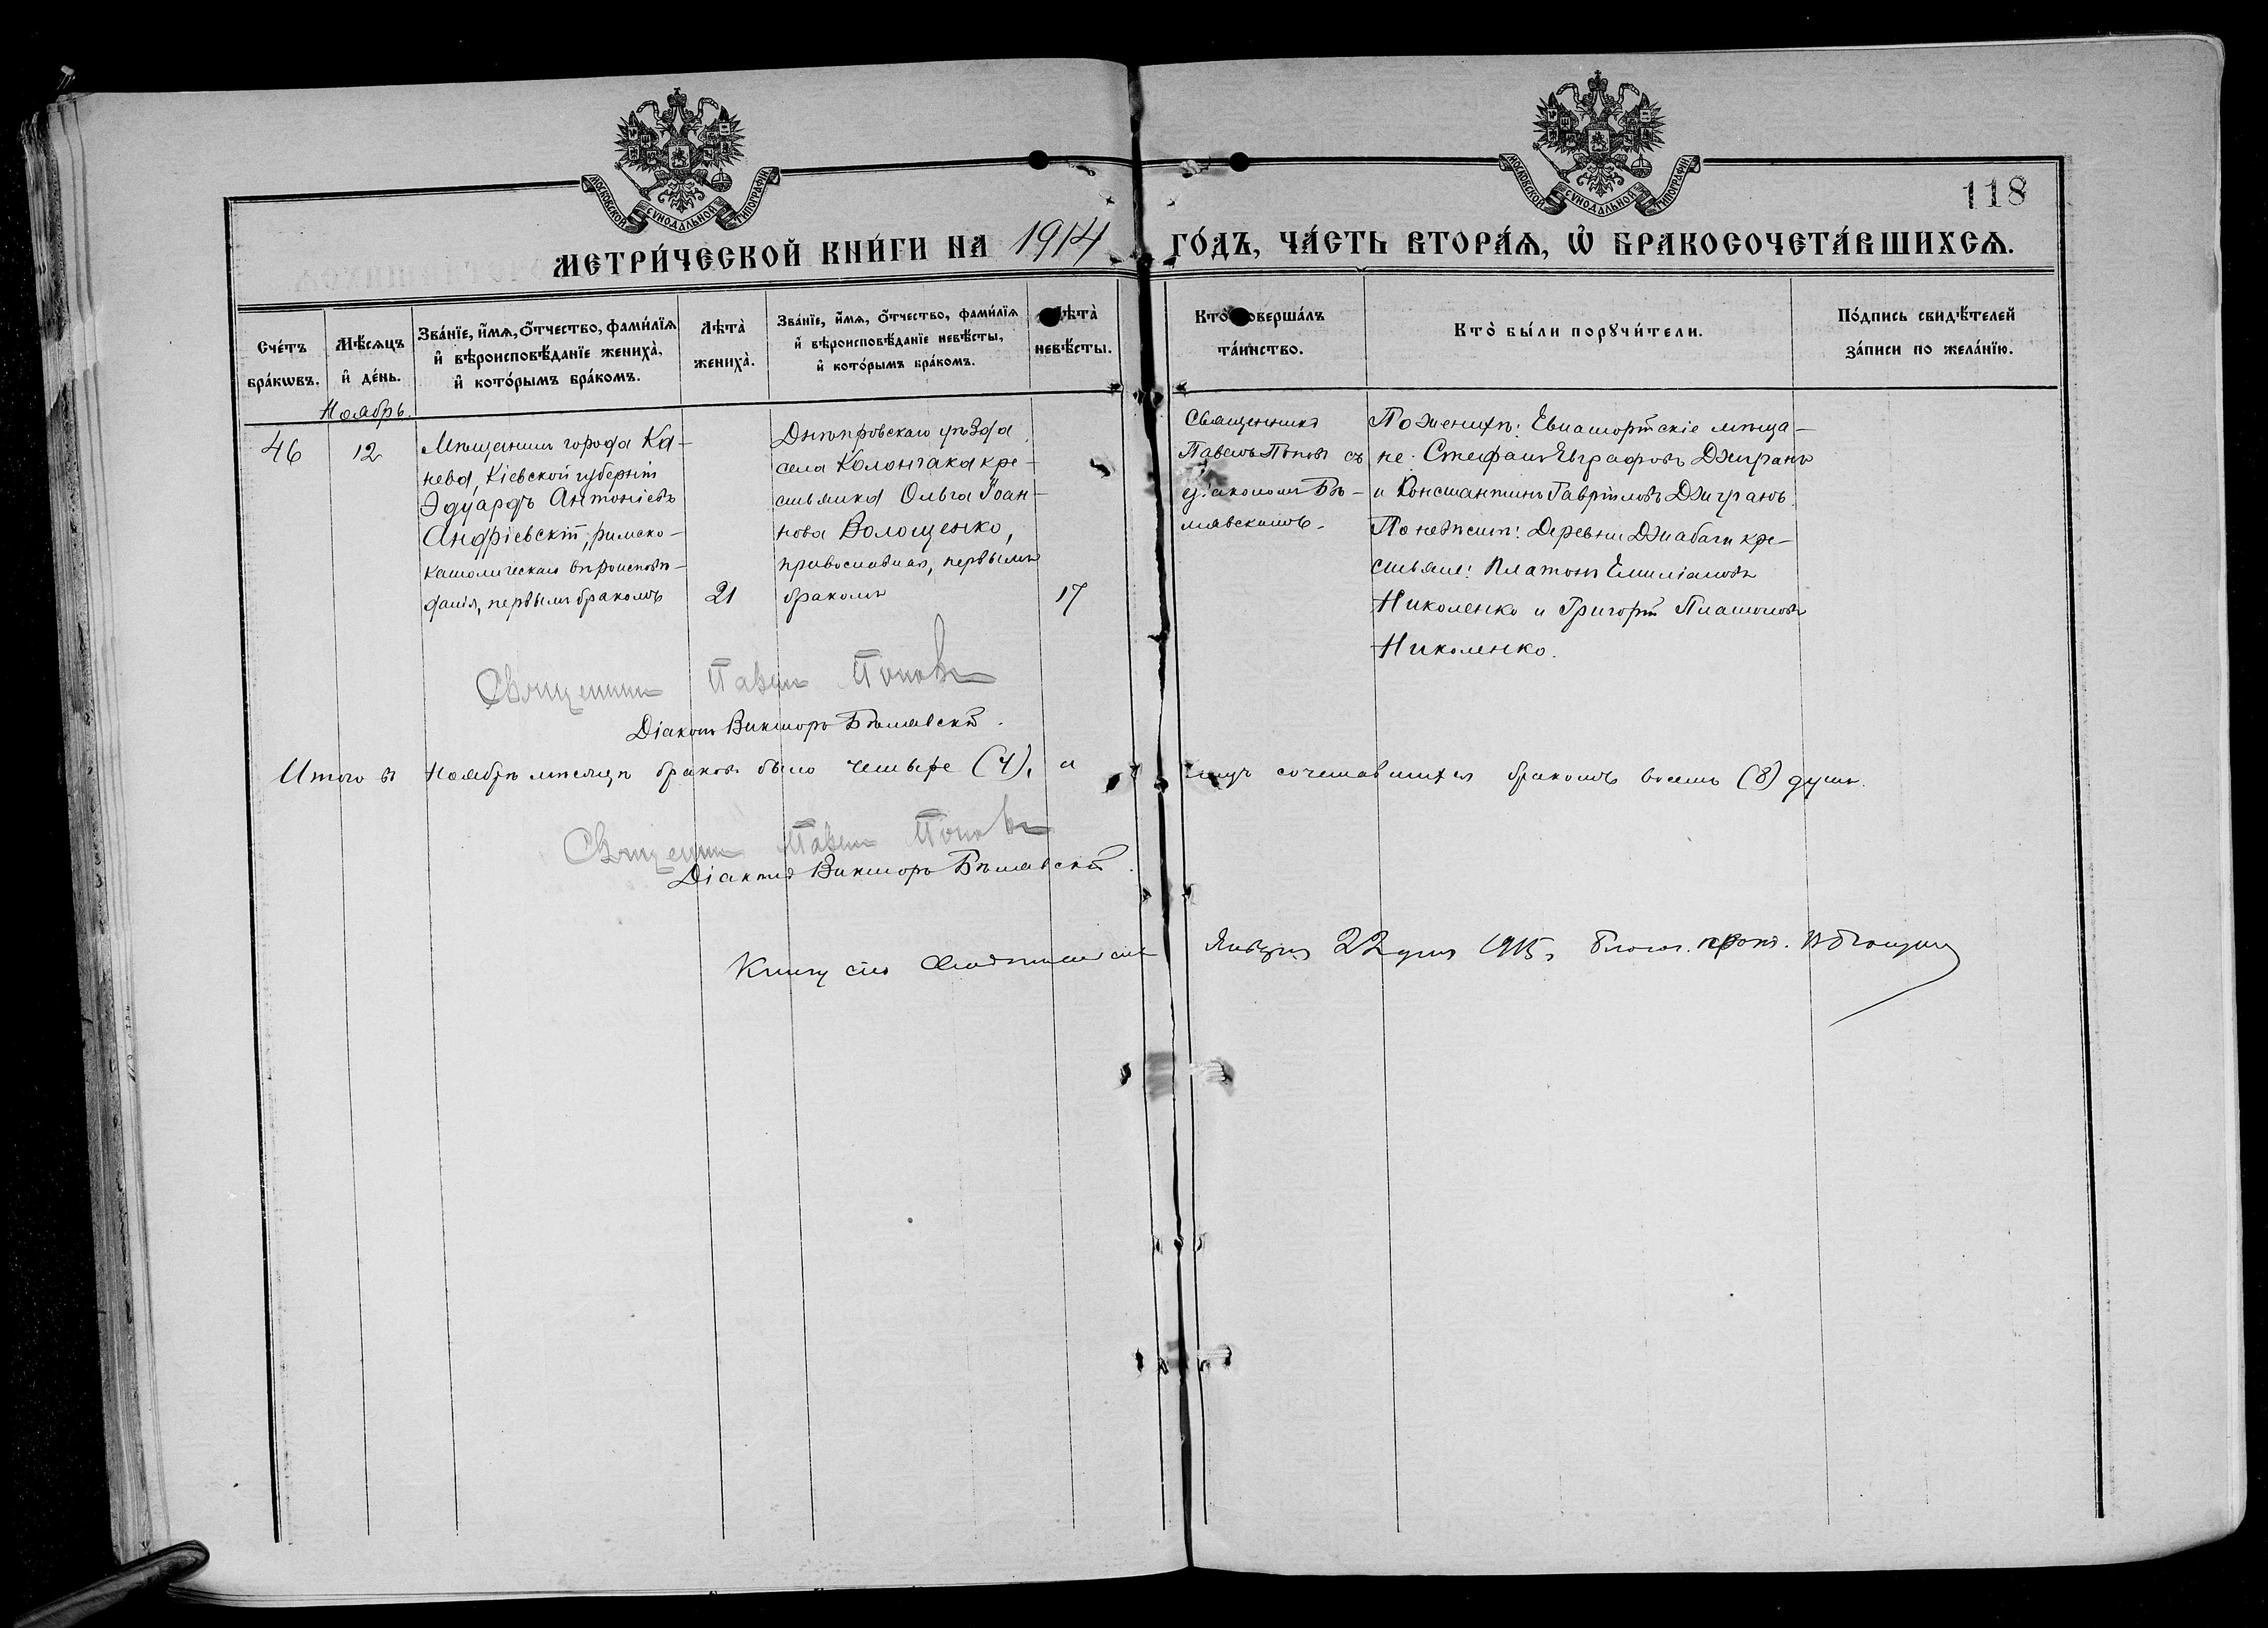 МОСКОВСКОЙ СѴНОДАЛЬНОЙ ТИПОГРАФІИ
МОСКОВСКОЙ СѴНОДАЛЬНОЙ ТИПОГРАФІИ
118
МЕТРИ́ЧЕСКОЙ КНИ́ГИ НА 1914 ГО́ДЪ, ЧА́СТЬ ВТОРА́Я, Ѡ҆ БРАКОСОЧЕТА́ВШИХСЯ.
Сче́тъ бра́кѡвъ.
Мѣ́сяцъ и҆ де́нь.
Зва́нїе, и҆́мя, ѻ҆́тчество, фами́лїя
и҆ вѣроисповѣ́данїе жениха̀,
и҆ кото́рымъ бра́комъ.
Лѣта̀ жениха̀.
Зва́нїе, и҆́мя, ѻ҆́тчество, фами́лїя
и҆ вѣроисповѣ́данїе невѣ́сты,
и҆ кото́рымъ бра́комъ.
Лѣта̀ невѣ́сты.
Кто̀ соверша́лъ
та́инство.
Кто̀ бы́ли порꙋчи́тели.
По́дпись свидѣ́телей
за́писи по жела́нїю.
Ноябрь.
46
12
Мѣщанинъ города Ка-
нева, Кіевской губерніи
Эдуардъ Антоніевъ
Андріевскій, римско-
католическаго вѣроисповѣ-
данія, первымъ бракомъ
21
Днѣпровскаго уѣзда
села Колончака кре-
стьянка Ольга Іоан-
нова Волощенко,
православная, первымъ
бракомъ
17
Священникъ
Павелъ Поповъ съ
діакономъ Бѣ-
лявскимъ.
По женихѣ: Евпаторійскіе мѣща-
не: Стефанъ Евграфовъ Джигранъ
и Константинъ Гавріиловъ Джигранъ.
По невѣстѣ: Деревни Джабаги кре-
стьяне: Платонъ Емиліановъ
Николенко и Григорій Платоновъ
Николенко.
Священникъ Павелъ Поповъ
Діаконъ Викторъ Бѣлявскій.
Итого въ Ноябрѣ мѣсяцѣ браковъ было четыре (4), а лицъ сочетавшихся бракомъ восемь (8) душъ.
Священникъ Павелъ Поповъ
Діаконъ Викторъ Бѣлявскій.
Книгу сію Января 22 дня 1915 г. Благоч. прот.